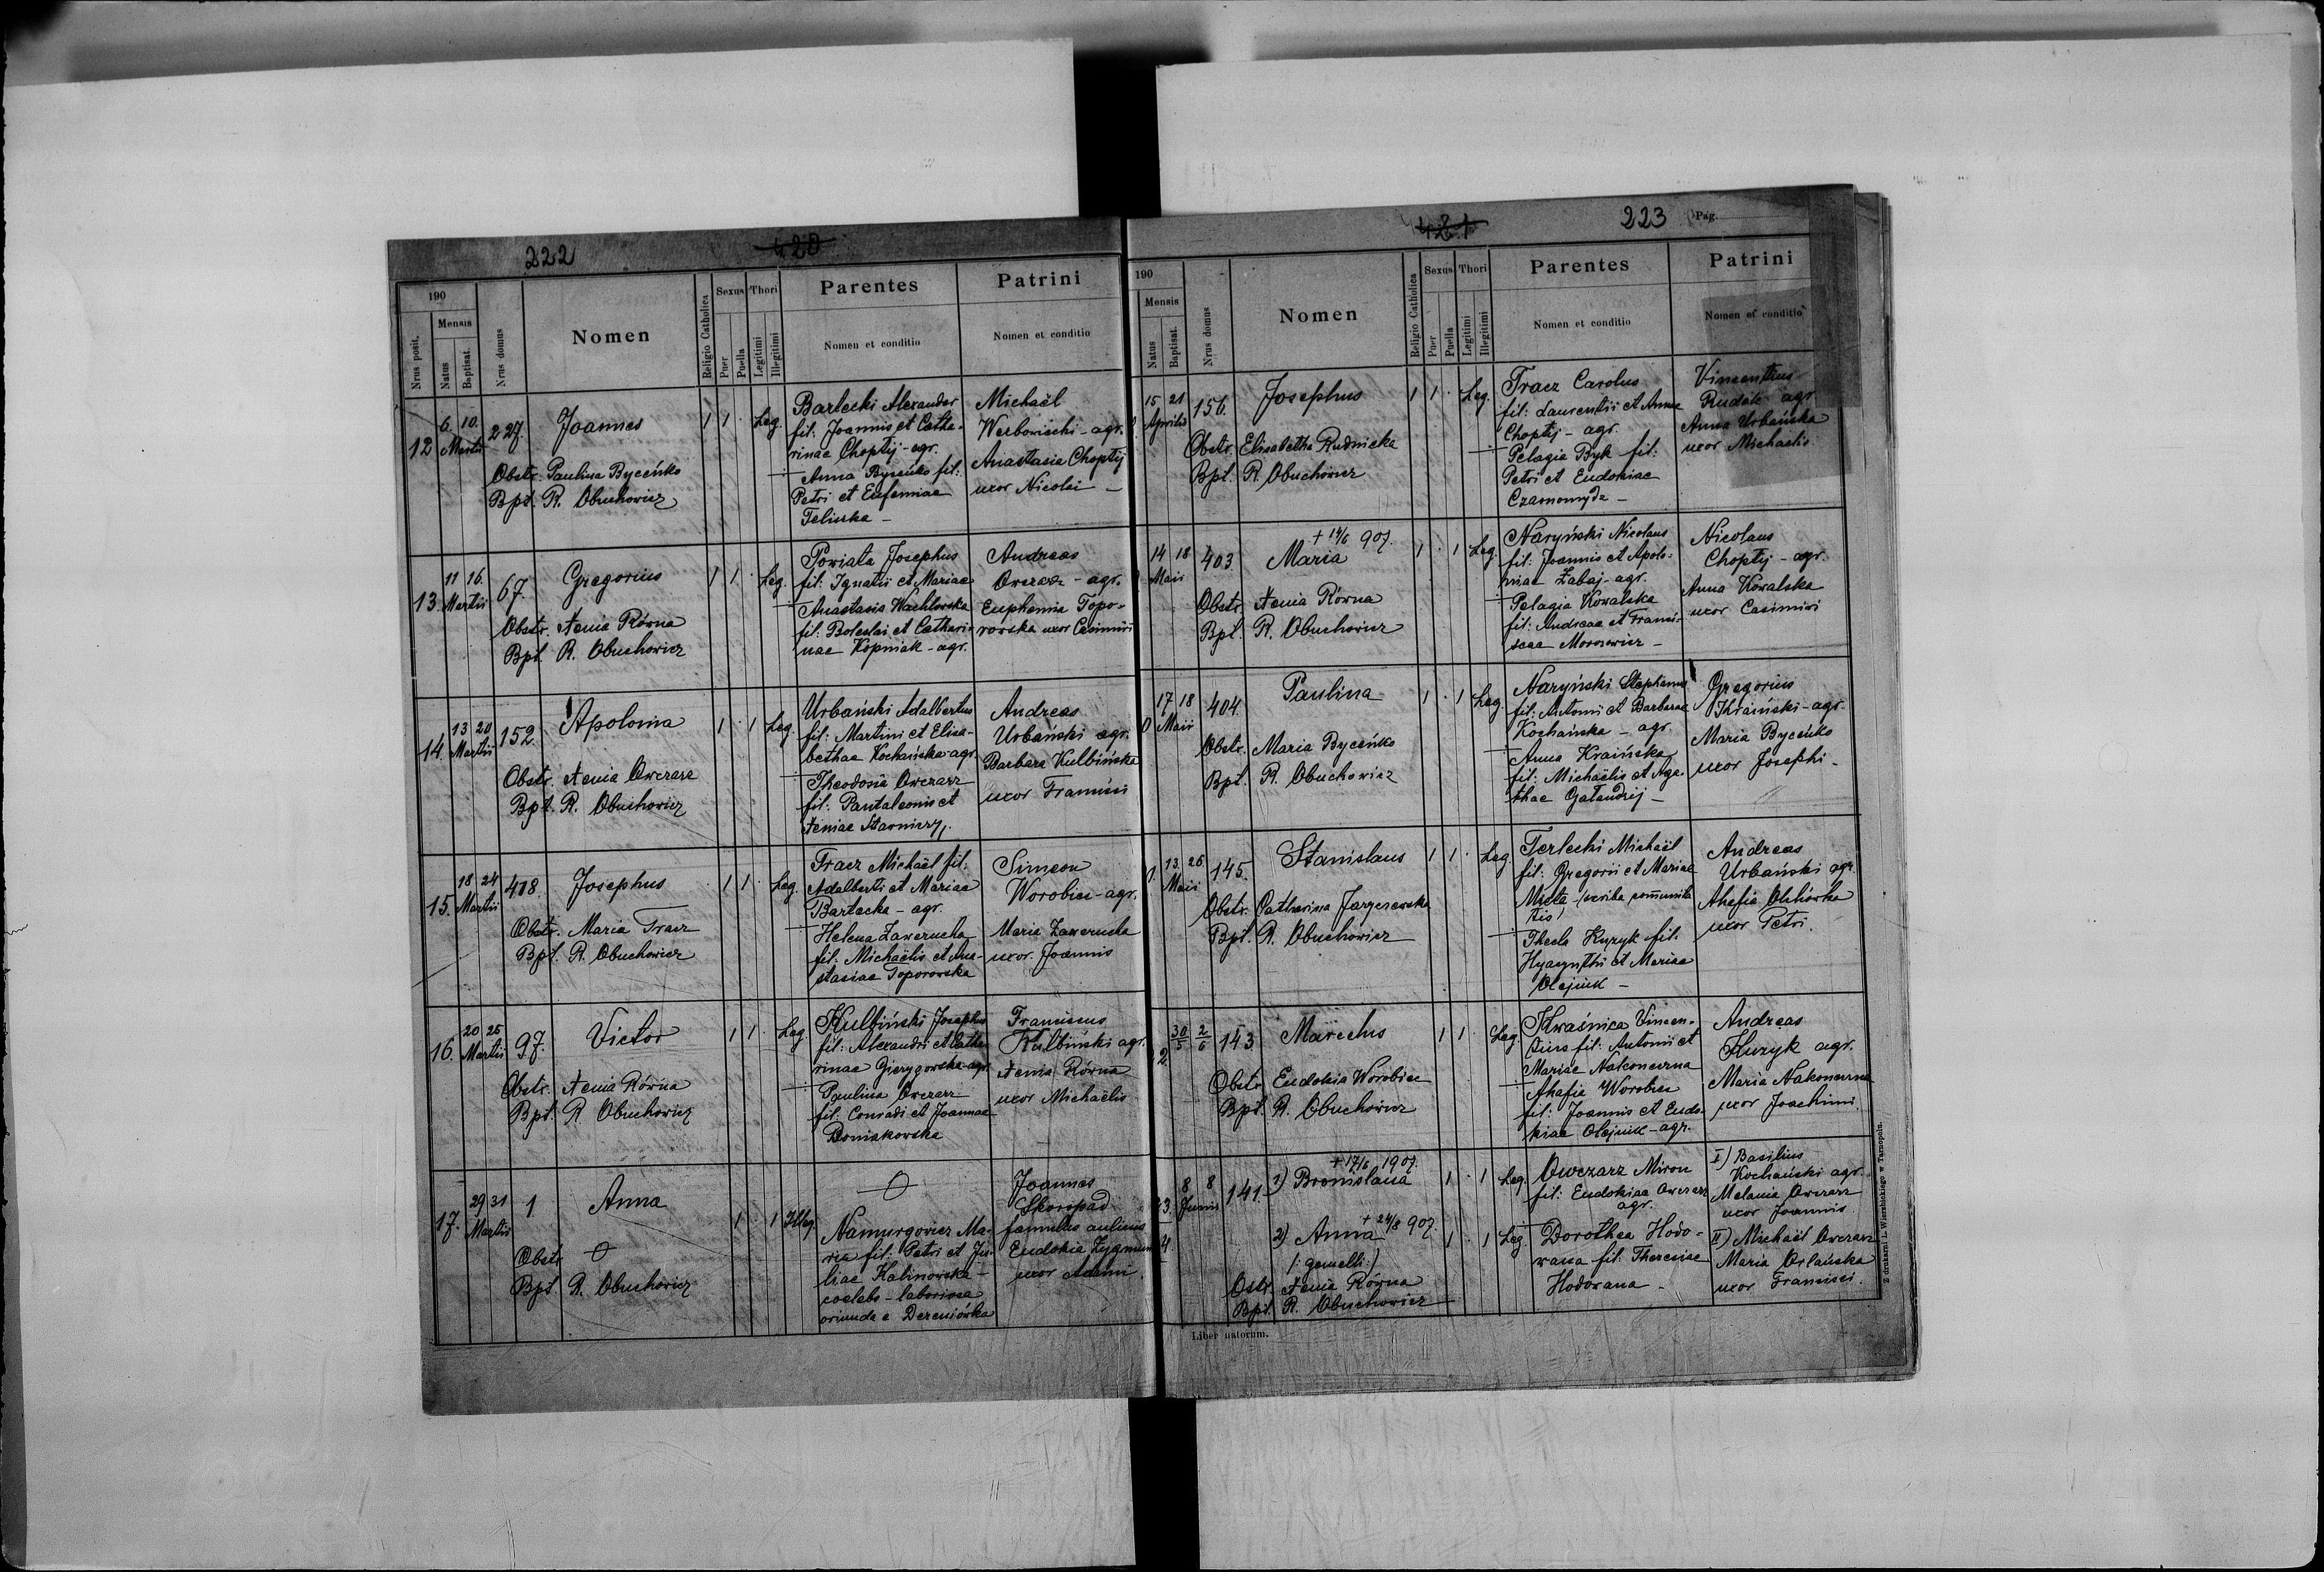 222
420
190
Nrus posit.
Mensis
Natus
Baptisat.
Nrus domus
Nomen
Religio Catholica
Sexus
Puer
Puella
Thori
Legitimi
Illegitimi
Parentes
Nomen et conditio
Patrini
Nomen et conditio
12
6. 10.
Martii
227.
Joannes
1 1 · Leg.
Obstr. Paulina Byceńko
Bpt. R. Obuchowicz
Bartecki Alexander
fil: Joannis et Catha-
rinae Choptij - agr.
Anna Byceńko fil:
Petri et Eufemiae
Teliuka -
Michaël
Werbowiecki - agr.
Anastasia Choptij
uxor Nicolai -
13.
11 16.
Martii
67.
Gregorius
1 1 · Leg.
Obstr. Xenia Równa
Bpt. R. Obuchowicz
Powiata Josephus
fil: Ignatii et Mariae
Anastasia Wachlowska
fil: Boleslai et Cathari-
nae Kopniak - agr.
Andreas
Owczarz - agr.
Euphemia Topo-
rowska uxor Casimiri
14.
13 20
Martii
152.
Apolonia
1 · 1 Leg.
Obstr. Xenia Owczarz
Bpt. R. Obuchowicz
Urbański Adalbertus
fil: Martini et Elisa-
bethae Kochańska - agr.
Theodosia Owczarz
fil: Pantaleonis et
Xeniae
Andreas
Urbański agr.
Barbara Kulbińska
uxor Francisci
15.
18 24
Martii
418.
Josephus
1 1 · Leg.
Obstr. Maria Tracz
Bpt. R. Obuchowicz
Tracz Michaël fil:
Adalberti et Mariae
Bartecka - agr.
Helena Zawerucha
fil: Michaëlis et Ana-
stasiae Toporowska
Simeon
Worobiec - agr.
Maria Zawerucha
uxor Joannis
16.
20 25
Martii
97.
Victor
1 1 · Leg
Obstr. Xenia Równa
Bpt. R. Obuchowicz
Kulbiński Josephus
fil: Alexandri et Catha-
rinae Gierygowska agr.
Paulina Owczarz
fil: Conradi et Joannae
Domiakowska
Franciscus
Kulbiński agr.
Xenia Równa
uxor Michaëlis
17.
29 31
Martii
1
Anna
1 · 1 Illeg.
Obstr.
Bpt. R. Obuchowicz
Namurgowicz Ma-
ria fil: Petri et Ju-
liae Kalinowska -
coelebs - laboriosa
oriunda e Dereniówka
Joannes
Skoropad
famulus aulicus
Eudokia Zygmunt
uxor Adami.
421
223
Pag.
190
Mensis
Natus
Baptisat.
Nrus domus
Nomen
Religio Catholica
Sexus
Puer
Puella
Thori
Legitimi
Illegitimi
Parentes
Nomen et conditio
Patrini
Nomen et conditio
15 21
Aprilis
156.
Josephus
1 1 · Leg.
Obstr. Elisabetha Rudnicka
Bpt. R. Obuchowicz
Tracz Carolus
fil: Laurentii et Annae
Choptij - agr.
Pelagia Byk fil:
Petri et Eudokiae
Vincentius
Rudak agr
Anna Urbańska
uxor Michaelis
14 18
Maii
403.
+ 14/6 907.
Maria
1 · 1 Leg.
Obstr. Xenia Równa
Bpt. R. Obuchowicz
Naryński Nicolaus
fil: Joannis et Apolo-
niae Zabaj - agr.
Pelagia Kowalska
fil: Andreae et Franci-
scae Morozowicz -
Nicolaus
Choptij - agr.
Anna Kowalska
uxor Casimiri
17 18
0 Maii
404.
Paulina
1 · 1 Leg.
Obstr. Maria Byceńko
Bpt. R. Obuchowicz
Naryński Stephanus
fil: Antonii et Barbarae
Kochańska - agr.
Anna Kraińska
fil: Michaëlis et Aga-
thae Gałandzij -
Gregorius
Kraiński - agr.
Maria Byceńko
uxor Josephi -
13 26
Maii
145.
Stanislaus
1 1 · Leg.
Obstr. Catharina Jarycrewska
Bpt. R. Obuchowicz
Terlecki Michaël
fil: Gregorii et Mariae
Mista - (scriba communita
tis)
Thecla Kuzyk fil:
Hyacynthi et Mariae
Olejnik -
Andreas
Urbański agr.
Ahafia Olchówka
uxor Petri.
2.
30/5 2/6
143.
Marcelus
1 1 · Leg
Obstr. Eudokia Worobiec
Bpt. R. Obuchowicz
Kwaśnica Vincen-
tius fil: Antonii et
Mariae Nakoneczna
Ahafia Worobiec
fil: Joannis et Eudo-
kiae Olejnik - agr.
Andreas
Kuzyk agr.
Maria Nakoneczna
uxor Joachimi.
3.
4
8 8
Junii
141.
+ 17/6 1907.
1) Bronislava
1 · 1 Leg.
2) Anna + 24/8 907.
1 · 1 Leg.
/: gemelli :/
Ostr. Xenia Równa
Bpt. R. Obuchowicz
Owczarz Miron
fil: Eudokiae Owczarz
agr.
Dorothea Hodo-
wana fil: Theresiae
Hodowana -
I) Basilius
Kochański agr.
Melania Owczarz
uxor Joannis.
II) Michaël Owczarz
Maria Orlańska
uxor Francisci.
Liber natorum.
Z drukarni L. Wierzbickiego w Tarnopolu.